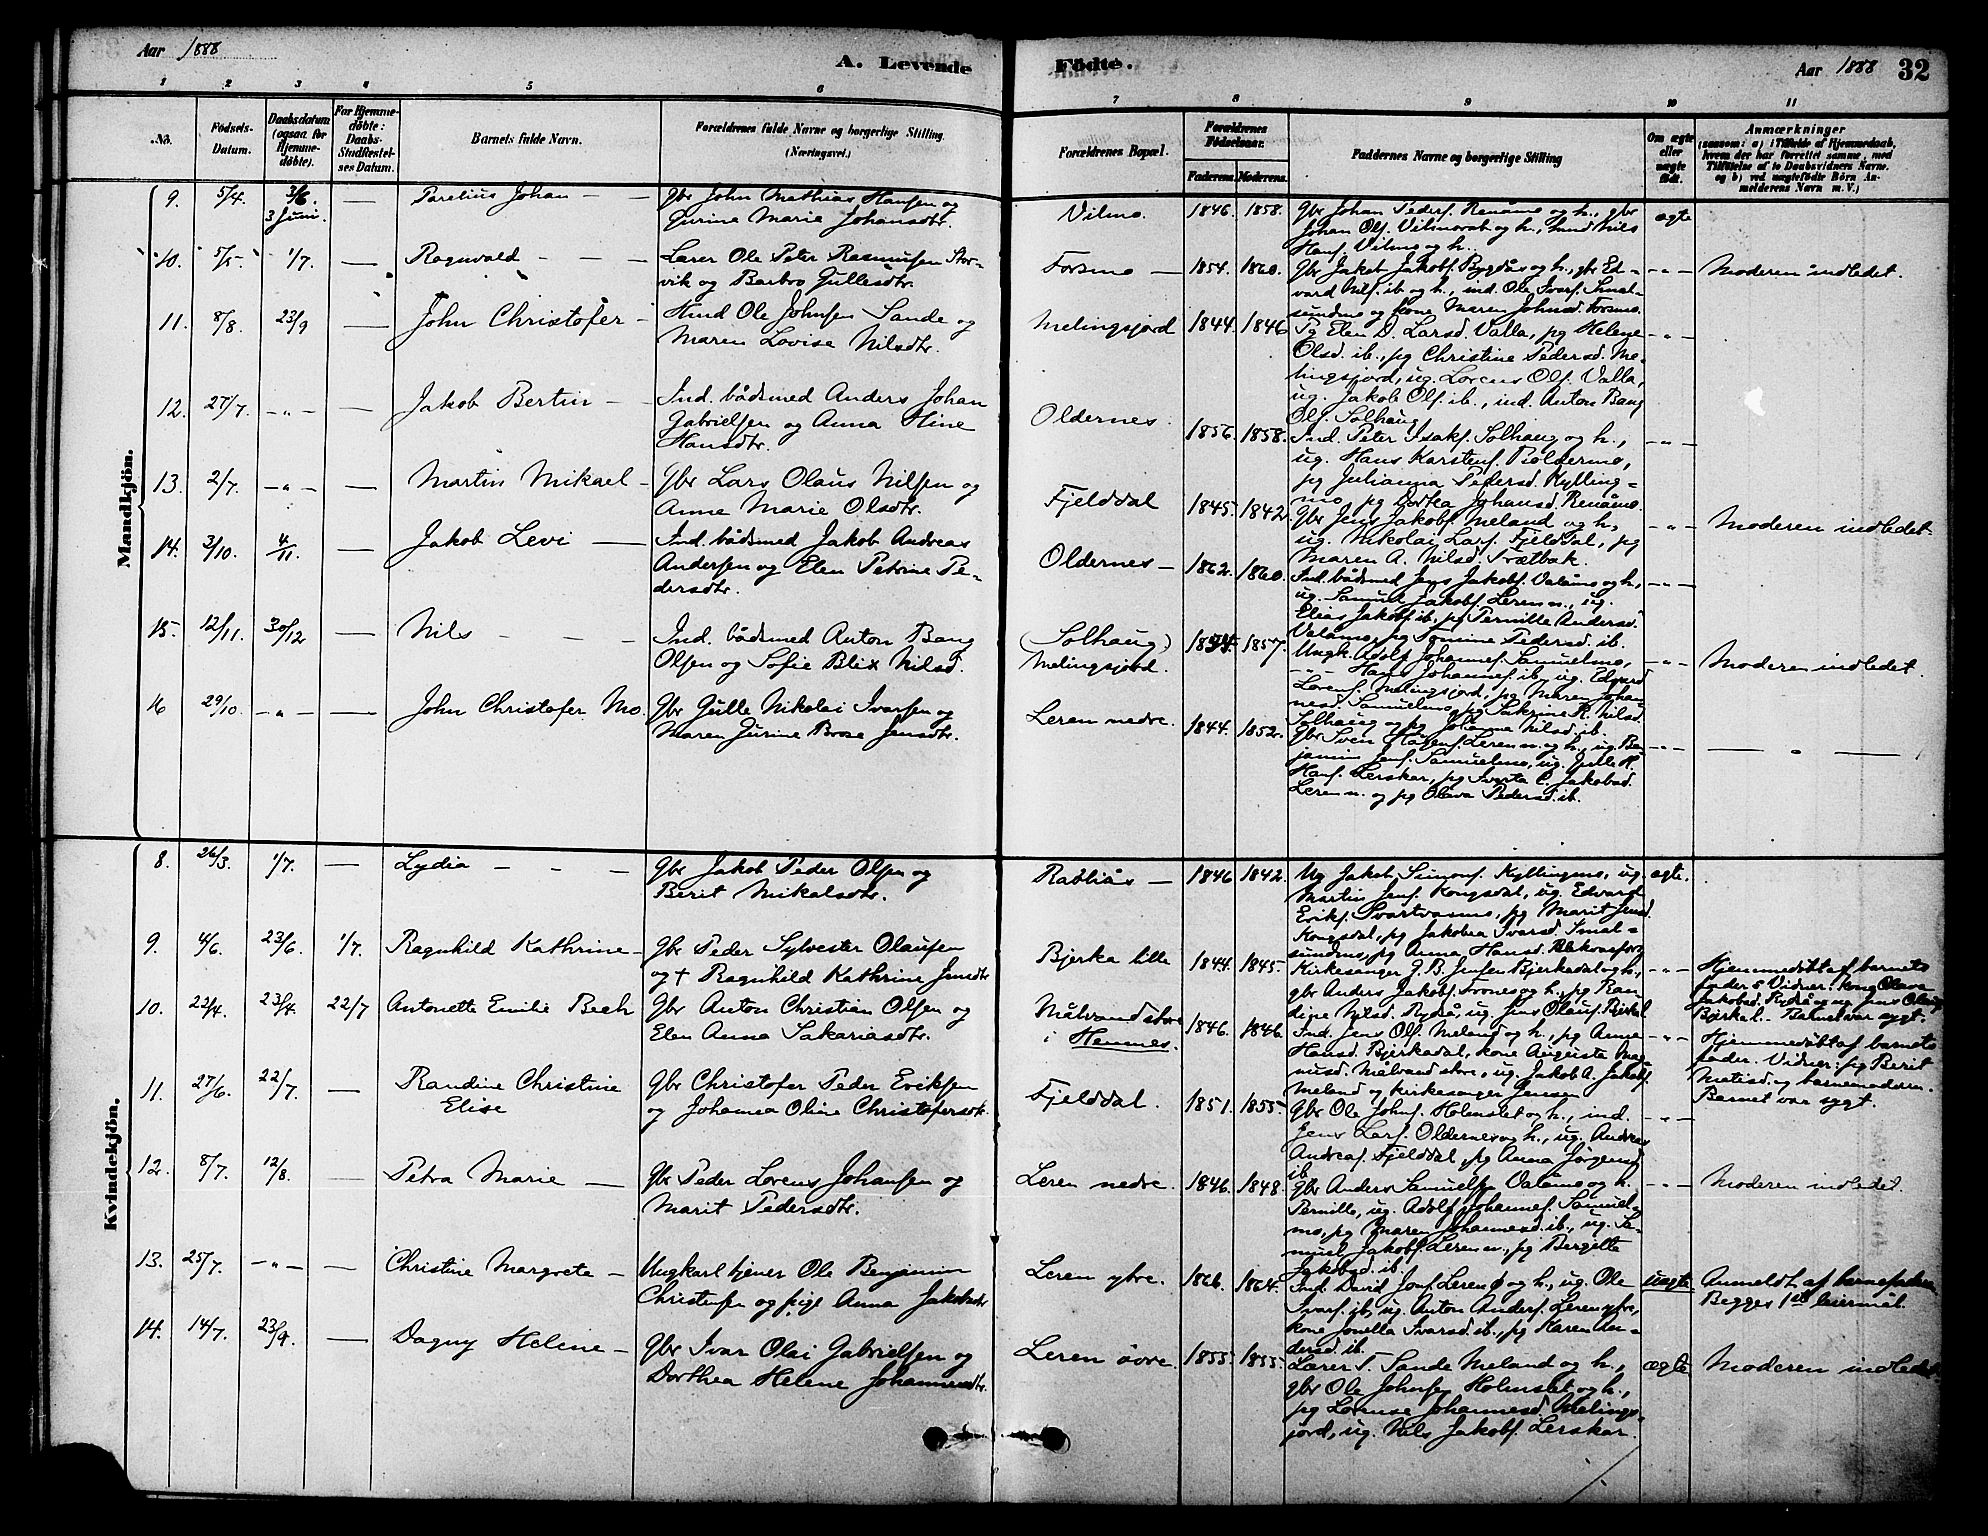 Aar 1888
A. Levende
Födte.
Aar 1888 32
1 2 3 4 5 6 7 8 9 10 11
No.
Födsels-
Datum.
Daabsdatum
(ogsaa for
Hjemme-
döbte).
For Hjemme-
döbte:
Daabs-
Stadfæstel-
ses Datum.
Barnets fulde Navn.
Forældrenes fulde Navne og borgerlige Stilling.
(Næringsvei.)
Forældrenes Bopæl.
Forældrenes
Födselsaar.
Faderens. Moderens.
Faddernes Navne og borgerlige Stilling
Om ægte
eller
uægte
födt.
Anmærkninger
(saasom: a) i Tilfælde af Hjemmedaab,
hvem der har forrettet samme, med
Tilföielse af to Daabsvidners Navne.
og b) ved uægtefödte Börn An-
melderens Navn m. V.)
Mandkjön.
9. 5/4. 3/6. 3 Juni. — Parelius Johan —
Gbr John Mathias Hansen og
Jurine Marie Johansdtr.
Vilmo. 1846. 1858.
Gbr Johan Peders. Renåmo og h., gbr
Johan Ols. Vilmorat og h., ind Nils
Hans. Vilmo og h..
ægte
10. 5/5. 1/7. — Ragnvald — — —
Lærer Ole Peter Rasmusen Stor-
vik og Barbro Gullesdtr.
Forsmo — 1854. 1860.
Gbr Jakob Jakobs. Bygdås og h., gbr Ed-
vard Nils. ib og h., ind. Ole Ivars. Smal-
sundmo og kone Maren Johnsd. Forsmo.
-"- Moderen indledet.
11. 8/8. 23/9 — John Christofer —
Hmd Ole Johnsen Sande og
Maren Lovise Nilsdtr.
Melingsjord 1844. 1846
Pg Elen D. Larsd. Valla, pg Helene
Olsd. ib., pg Christine Pedersd. Me-
lingsjord, ug. Lorens Ols. Valla,
ug. Jakob Ols. ib., ind. Anton Bang
Ols. Solhaug
-"-
12. 27/7. -"- — Jakob Bertin —
Ind. bådsmed Anders Johan
Gabrielsen og Anna Hine
Hansdtr.
Oldernes. 1856. 1858.
Ind. Peter Isaks. Solhaug og h.,
ug. Hans Karstens. Boldermo,
pg Julianna Pedersd. Kylling-
mo, pg Dortea Johansd. Renåmo.
-"-
13. 2/7. -"- — Martin Mikael —
Gbr Lars Olaus Nilsen og
Anne Marie Olsdtr.
Fjelddal 1845. 1842.
Gbr Jens Jakobs. Meland og h,
ug. Nikolai Lars. Fjelddal, pg
Maren A. Nilsd. Trætbak.
-"- Moderen indledet.
14. 3/10. 4/11. — Jakob Levi —
Ind. bådsmed Jakob Andreas
Andersen og Elen Petrine Pe-
dersdtr.
Oldernes — 1862. 1860.
Ind. bådsmed Jens Jakobs. Valåmo og h,
ug. Samuel Jakobs. Leren n., ug.
Elias Jakobs. ib, pg Pernille Andersd.
Valåmo, pg Tomine Pedersd. ib.
-"-
15. 12/11. 30/12 — Nils — —
Ind. bådsmed Anton Bang
Olsen og Sofie Blix Nilsd.
(Solhaug)
Melingsjord. 1857.
Ungk. Adolf Johannes. Samuelmo,
-"- Hans Johannes. ib., ug. Edvard
Lorens. Melingsjord, pg Maren Johan-
nesd. Samuelmo, pg Sakrine K. Nilsd.
Solhaug og pg Johanna Nilsd. ib.
-"- Moderen indledet.
16 29/10. -"- — John Christofer Mo.
Gbr Gulle Nikolai Ivarsen og
Maren Jurine Brose Jensdtr.
Leren nedre. 1844. 1852.
Gbr Sven Hågens. Leren n. og h., ug. Ben-
jamin Jens. Samuelmo, ug. Gulle K.
Hans. Lerskar, pg Ivarta C. Jakobsd.
Leren n. og pg Olava Pedersd. ib.
-"- — " —
Kvindekjön.
8. 26/3. 1/7. — Lydia — — —
Gbr Jakob Peder Olsen og
Berit Mikalsdtr.
Rabliås — 1846 1842.
Ug Jakob Simons. Kyllingmo, ug.
Martin Jens. Kongsdal, ug. Edvard
Eriks. Svartvasmo, pg Marit Jensd.
Kongsdal, pg Jakobea Ivarsd. Smal-
sundmo, pg Anna Hansd.
ægte.
9. 4/6. 23/6. 1/7. Ragnhild Kathrine —
Gbr Peder Sylvester Olausen
og † Ragnhild Kathrine Jensdtr
Bjerka lille 1844. 1845.
Kirkesanger J. B. Jensen Bjerkadal og h.,
gbr Anders Jakobs. Frones og h., pg Ran-
dine Nilsd. Rydså, ug. Jens Olaus. Bjerka l
-"- Hjemmedöbt af barnets
fader. Vidner: kone Olava
Jakobsd. Rydså og ug. Jens Olaus.
Bjerka l. Barnet var sygt.
10. 22/4. 23/4. 22/7 Antonette Emilie Bech
Gbr Anton Christian Olsen og
Elen Anna Sakariasdtr.
Målvand store
i Hemnes. 1846. 1846.
Ind. Jens Ols. Meland og h., pg Anne
Hansd. Bjerkadal, kone Augusta Mag-
nusd. Målvand store, ug. Jakob A. Jakobs.
Meland og kirkesanger Jensen
-"- Hjemmedöbt af barnets
fader. Vidner: pg Berit
Matisd. og barnemoderen.
Barnet var sygt.
11. 27/6. 22/7 — Randine Christine
Elise
Gbr Christofer Peder Eriksen
og Johanna Oline Christofersdtr.
Fjelddal. 1851. 1855.
Gbr Ole Johns. Holmslet og h., ind.
Jens Lars. Oldernes og h., ug. Andreas
Andreas. Fjelddal, pg Anna Jörgensd.
ib.
-"-
12. 8/7. 12/8. — Petra Marie —
Gbr Peder Lorens Johansen og
Marit Pedersdtr.
Leren nedre. 1846. 1848.
Gbr Anders Samuels. Valåmo og h.
Pernille, ug. Adolf Johannes. Samuel-
mo, pg Maren Johannesd. ib., ug. Sa-
muel Jakobs. Leren n., pg Bergitte
Jakobsd. ib.
-"- Moderen indledet.
13. 25/7. -"- — Christine Margrete —
Ungkarl tjener Ole Benjamin
Christensen og pige Anna Jakobsdtr
Leren ytre. 1866 1864.
Ind. David Jons. Leren ö og h., ug. Ole
Ivars. ib, ug. Anton Anders. Leren ytre,
kone Jonella Ivarsd. ib., pg Karen An-
dersd. ib.
uægte Anmeldt af barnefaderen
Begges 1ste leiermål.
14. 14/7. 23/9. — Dagny Heline —
Gbr Ivar Olai Gabrielsen og
Dorthea Helene Johannesdtr.
Leren övre. 1855. 1855.
Lærer T. Sande Meland og h.,
gbr Ole Johnsen Holmslet og h.,
pg Lorense Johannesd. Melings-
jord, ug. Nils Jakobs. Lerskar.
ægte Moderen indledet.